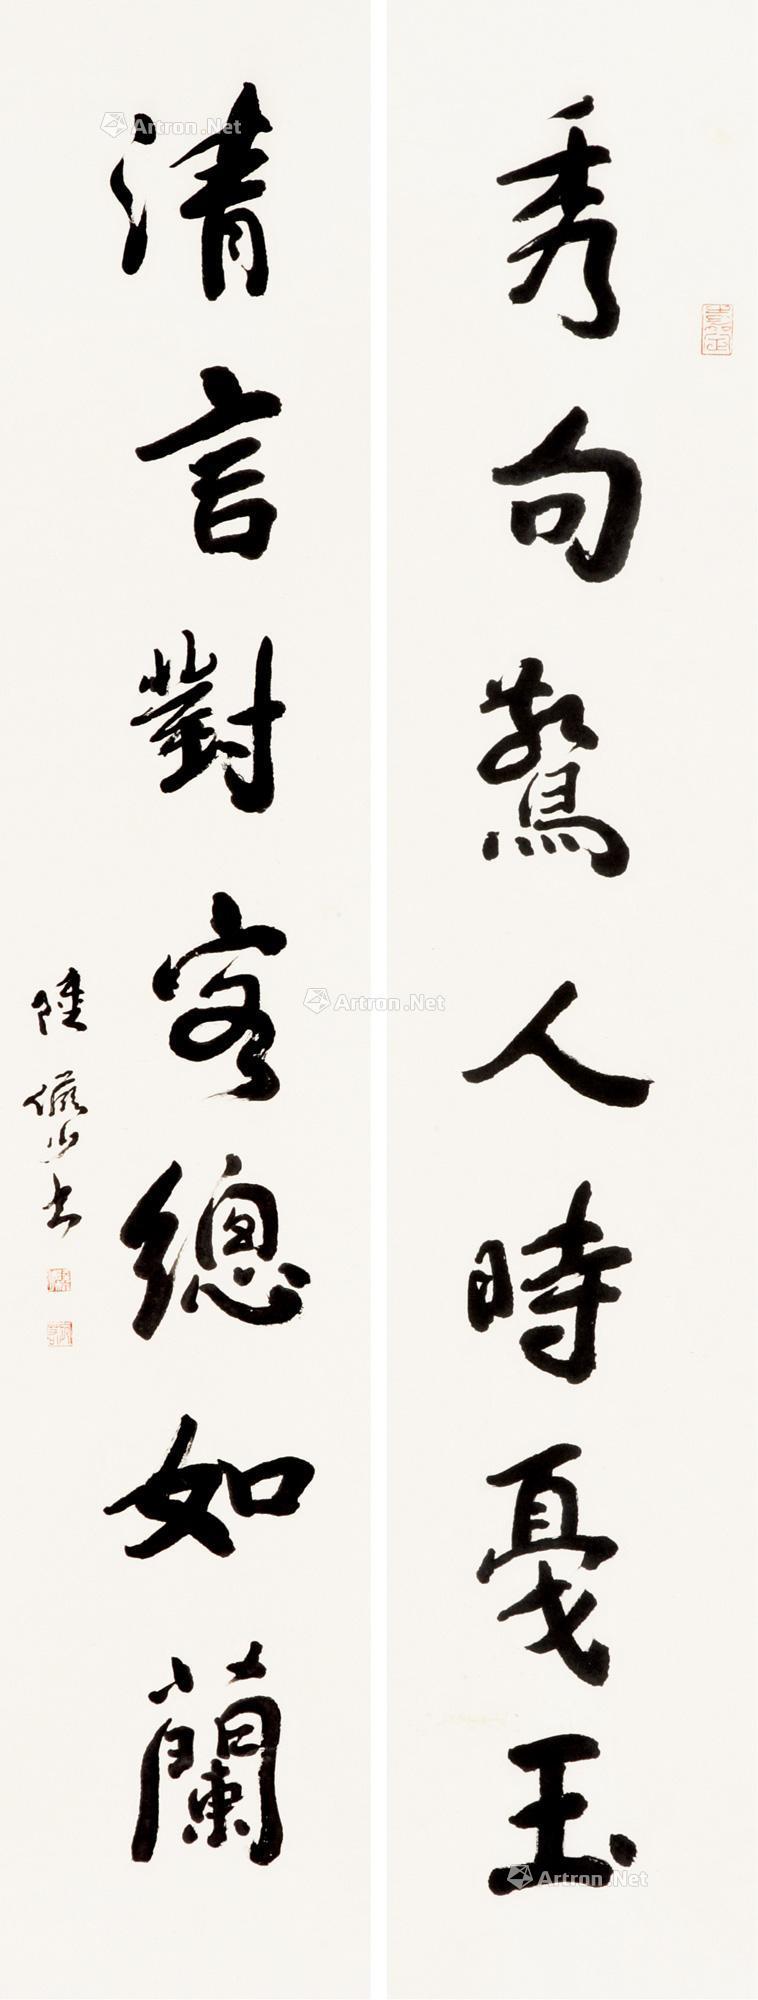 秀句驚人時戛玉
清言對客總如蘭
陸儼少書
Artron.Net
Artron.Net
Artron.Net